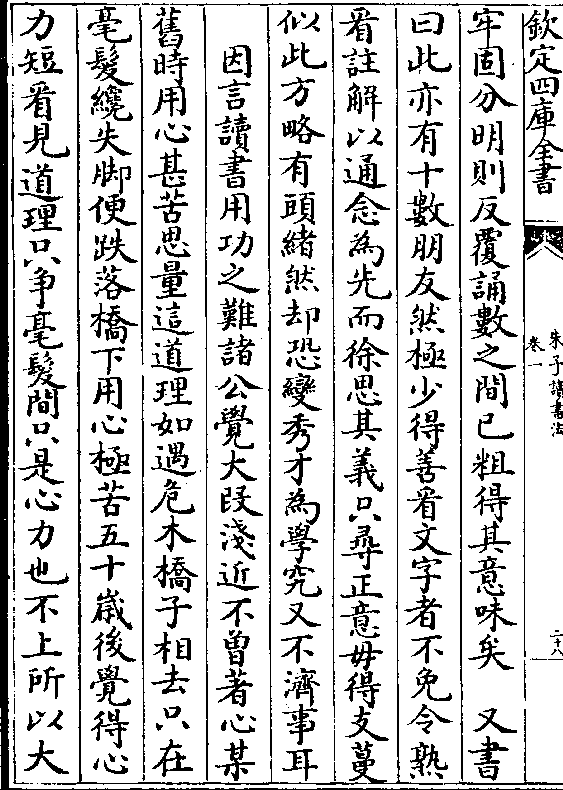 欽定四庫全書
朱子讀書法
卷一
二十八
牢固分明則反覆誦數之間已粗得其意味矣　又書
曰此亦有十數朋友然極少得善看文字者不免令熟
看註解以通念為先而徐思其義只尋正意毋得支蔓
似此方略有頭緒然却恐變秀才為學究又不濟事耳
因言讀書用功之難諸公覺大段淺近不曾著心某
舊時用心甚苦思量這道理如遇危木橋子相去只在
毫髮纔失脚便跌落橋下用心極苦五十歲後覺得心
力短看見道理只爭毫髮間只是心力也不上所以大